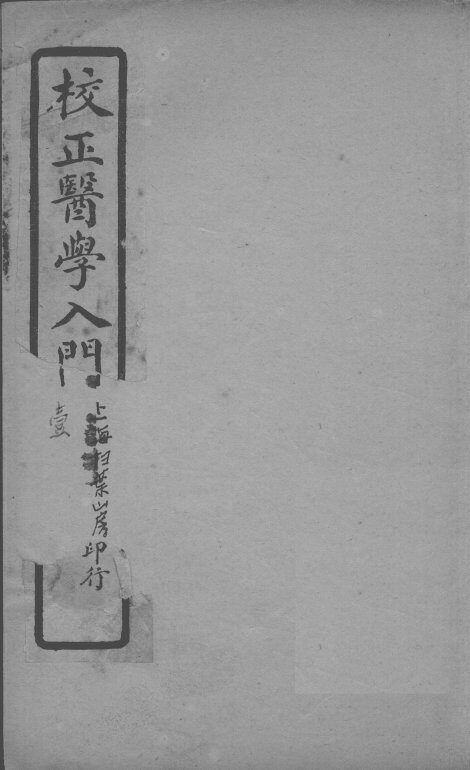 校正醫學入門
壹
上海掃葉山房印行